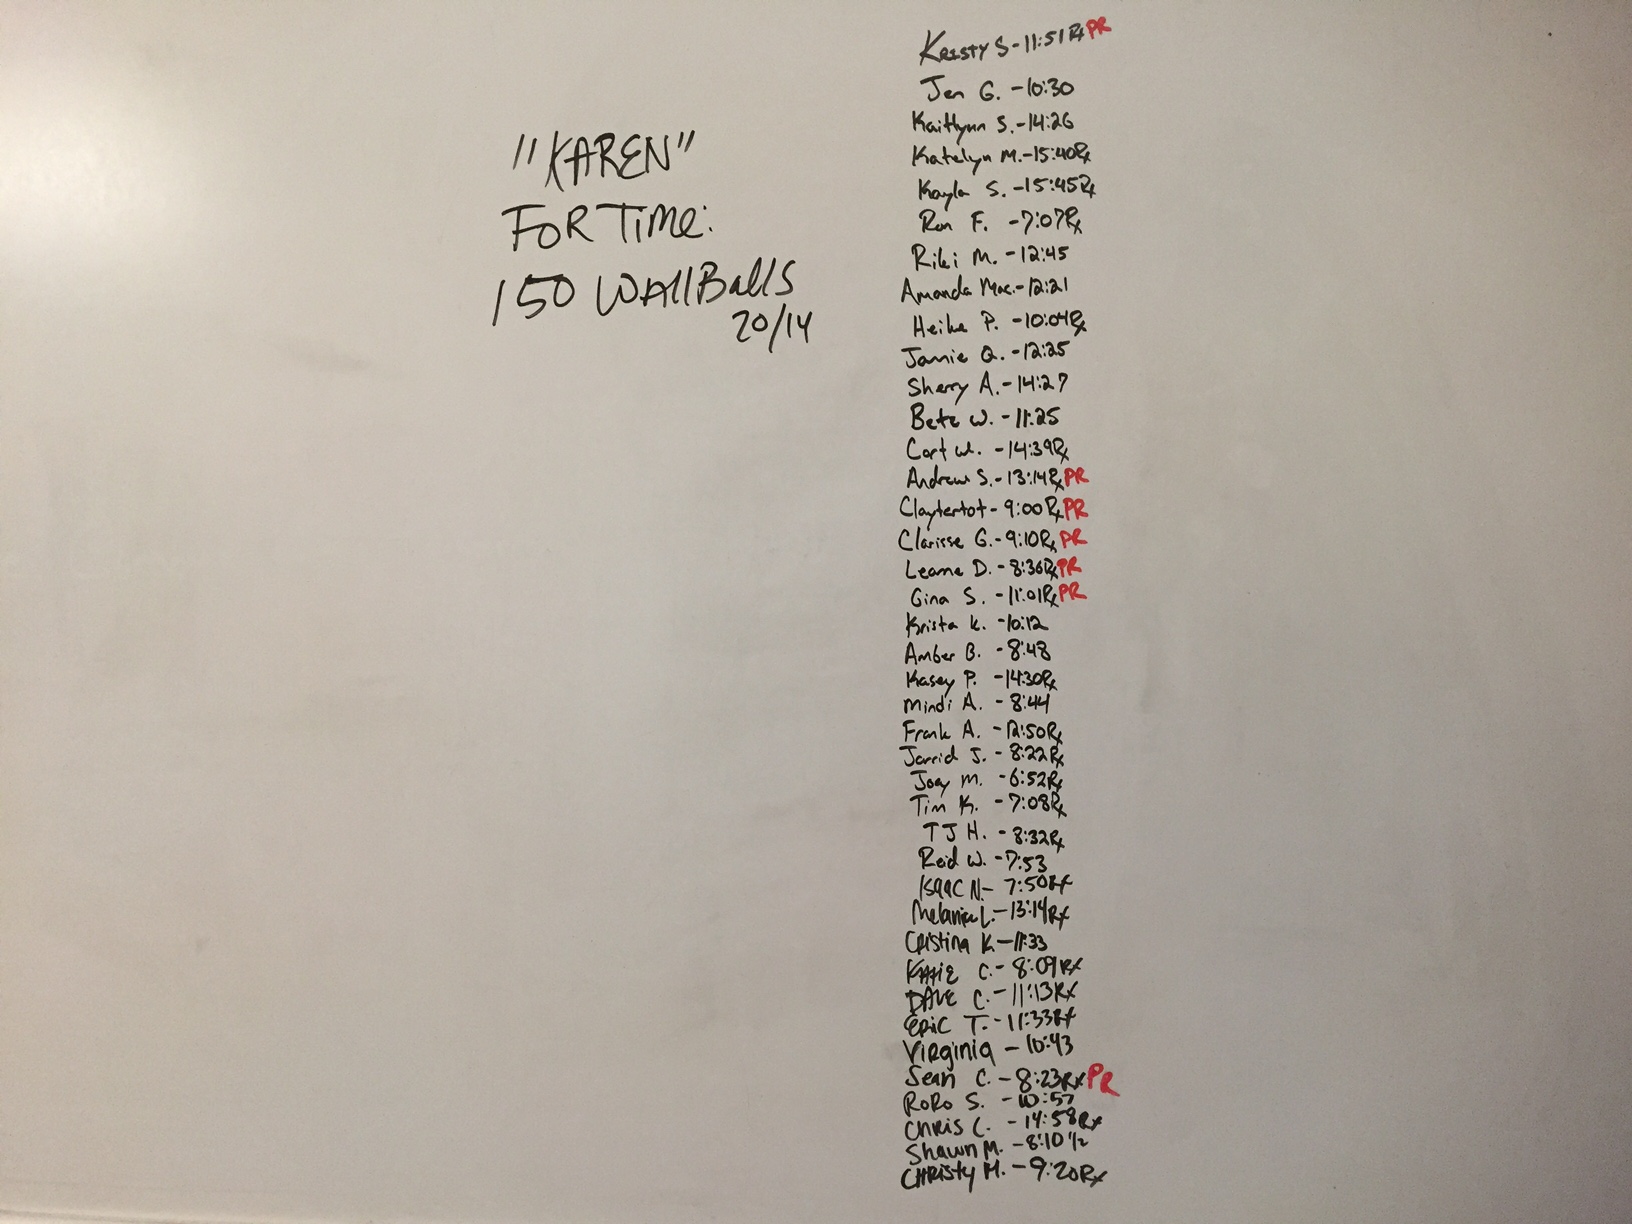 "KAREN"
FOR TIME:
150 WALLBALLS
20/14
KRISTY S - 11:51 Rx PR
Jen G. - 10:30
Kaitlynn S. - 14:26
Katelyn M. - 15:40 Rx
Kayla S. - 15:45 Rx
Ron F. - 7:07 Rx
Riki M. - 12:45
Amanda Mac. - 12:21
Heike P. - 10:04 Rx
Jamie Q. - 12:25
Sherry A. - 14:27
Betz W. - 11:25
Cort W. - 14:39 Rx
Andrew S. - 13:14 Rx PR
Claytertot - 9:00 Rx PR
Clarisse G. - 9:10 Rx PR
Leanne D. - 8:36 Rx PR
Gina S. - 11:01 Rx PR
Krista K. - 10:12
Amber B. - 8:48
Kasey P. - 14:30 Rx
Mindi A. - 8:44
Frank A. - 12:50 Rx
Jarrid J. - 8:22 Rx
Joey M. - 6:52 Rx
Tim K. - 7:08 Rx
TJ H. - 8:32 Rx
Reid W. - 7:53
ISAAC N - 7:50 Rx
Melanie L. - 13:14 Rx
CRISTINA K - 11:33
KATIE C. - 8:09 Rx
DAVE C. - 11:13 Rx
ERIC T. - 11:33 Rx
VIRginia - 10:43
Sean C. - 8:23 Rx PR
RoRo S. - 10:57
CHRIS C. - 14:58 Rx
Shawn M. - 8:10 1/2
CHRISTY M. - 9:20 Rx